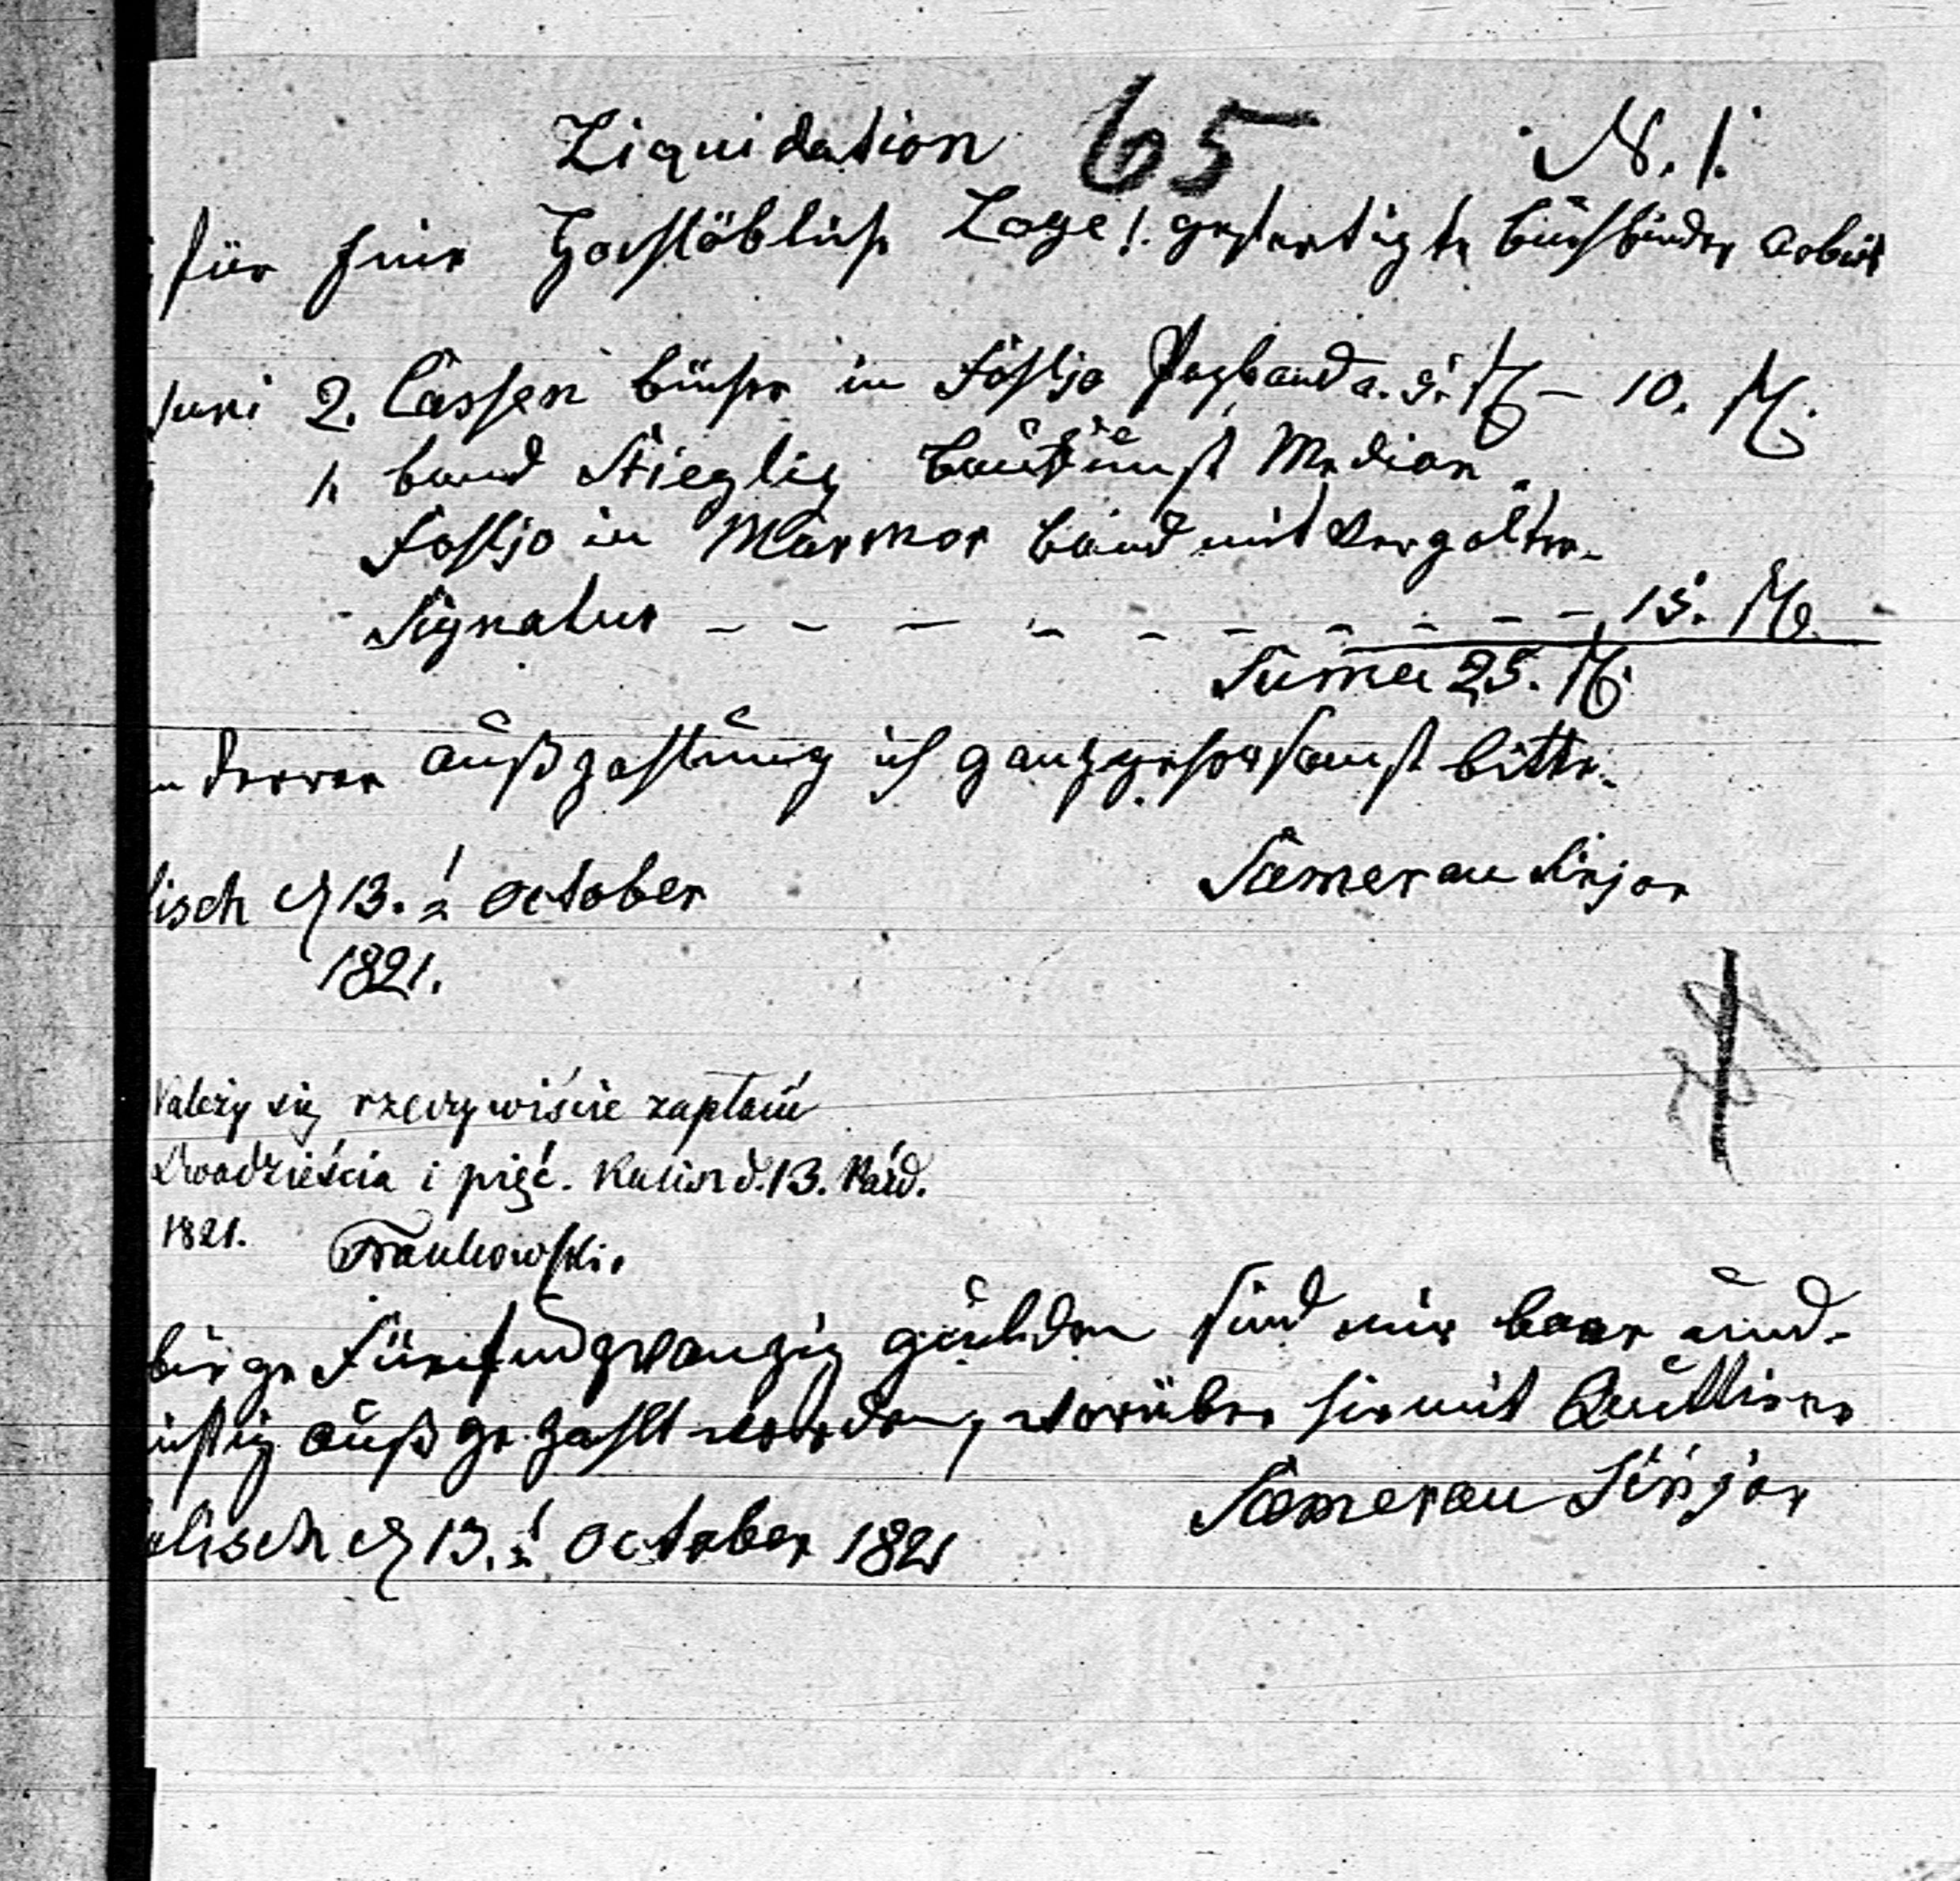 Liquidation 65 N. 1.
für Eine Hochlöbliche Loge!. gefertigte Buchbinder Arbeit
Juni 2. Cassen Bücher in Fohljo Papband a. 5. f – 10. f.
1. Band Stieglitz Baukunst Median
Fohljo in Marmor Band mit Vergolter
Signatur – – – – – – – – – 15. f.
Suma 25. f.
um derren außzahlung ich ganz gehorsamst bitte.
lisch d 13. October
1821.
Samerau Sinjor
Należy się rzeczywiście zapłacić
Dwadzieścia i pięć. Kalisz d. 13. Paźd.
1821.
obige Fünfundzwanzig gulden sind mir baar und
richtig außgezahlt worden, worüber hiermit Quittiere
Samerau Sinjor
alisch d 13. October 1821